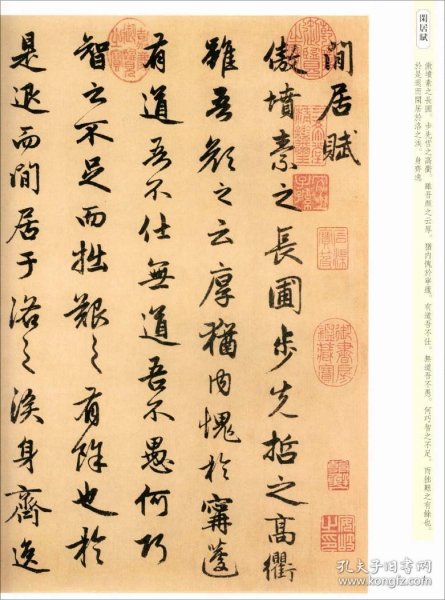 閑居賦
傲墳素之長圃。步先哲之高衢。雖吾顏之云厚。猶內愧於寧蘧。有道吾不仕。無道吾不愚。何巧智之不足。而拙艱之有餘也。
於是退而閒居於洛之涘。身齊逸
閒居賦
傲墳素之長圃步先哲之高衢
雖吾顏之云厚猶內愧於甯蘧
有道吾不仕無道吾不愚何巧
智之不足而拙艱之有餘也於
是退而閒居于洛之涘身齊逸
御書房鑑藏寶
孔夫子旧书网
www.kongfz.com